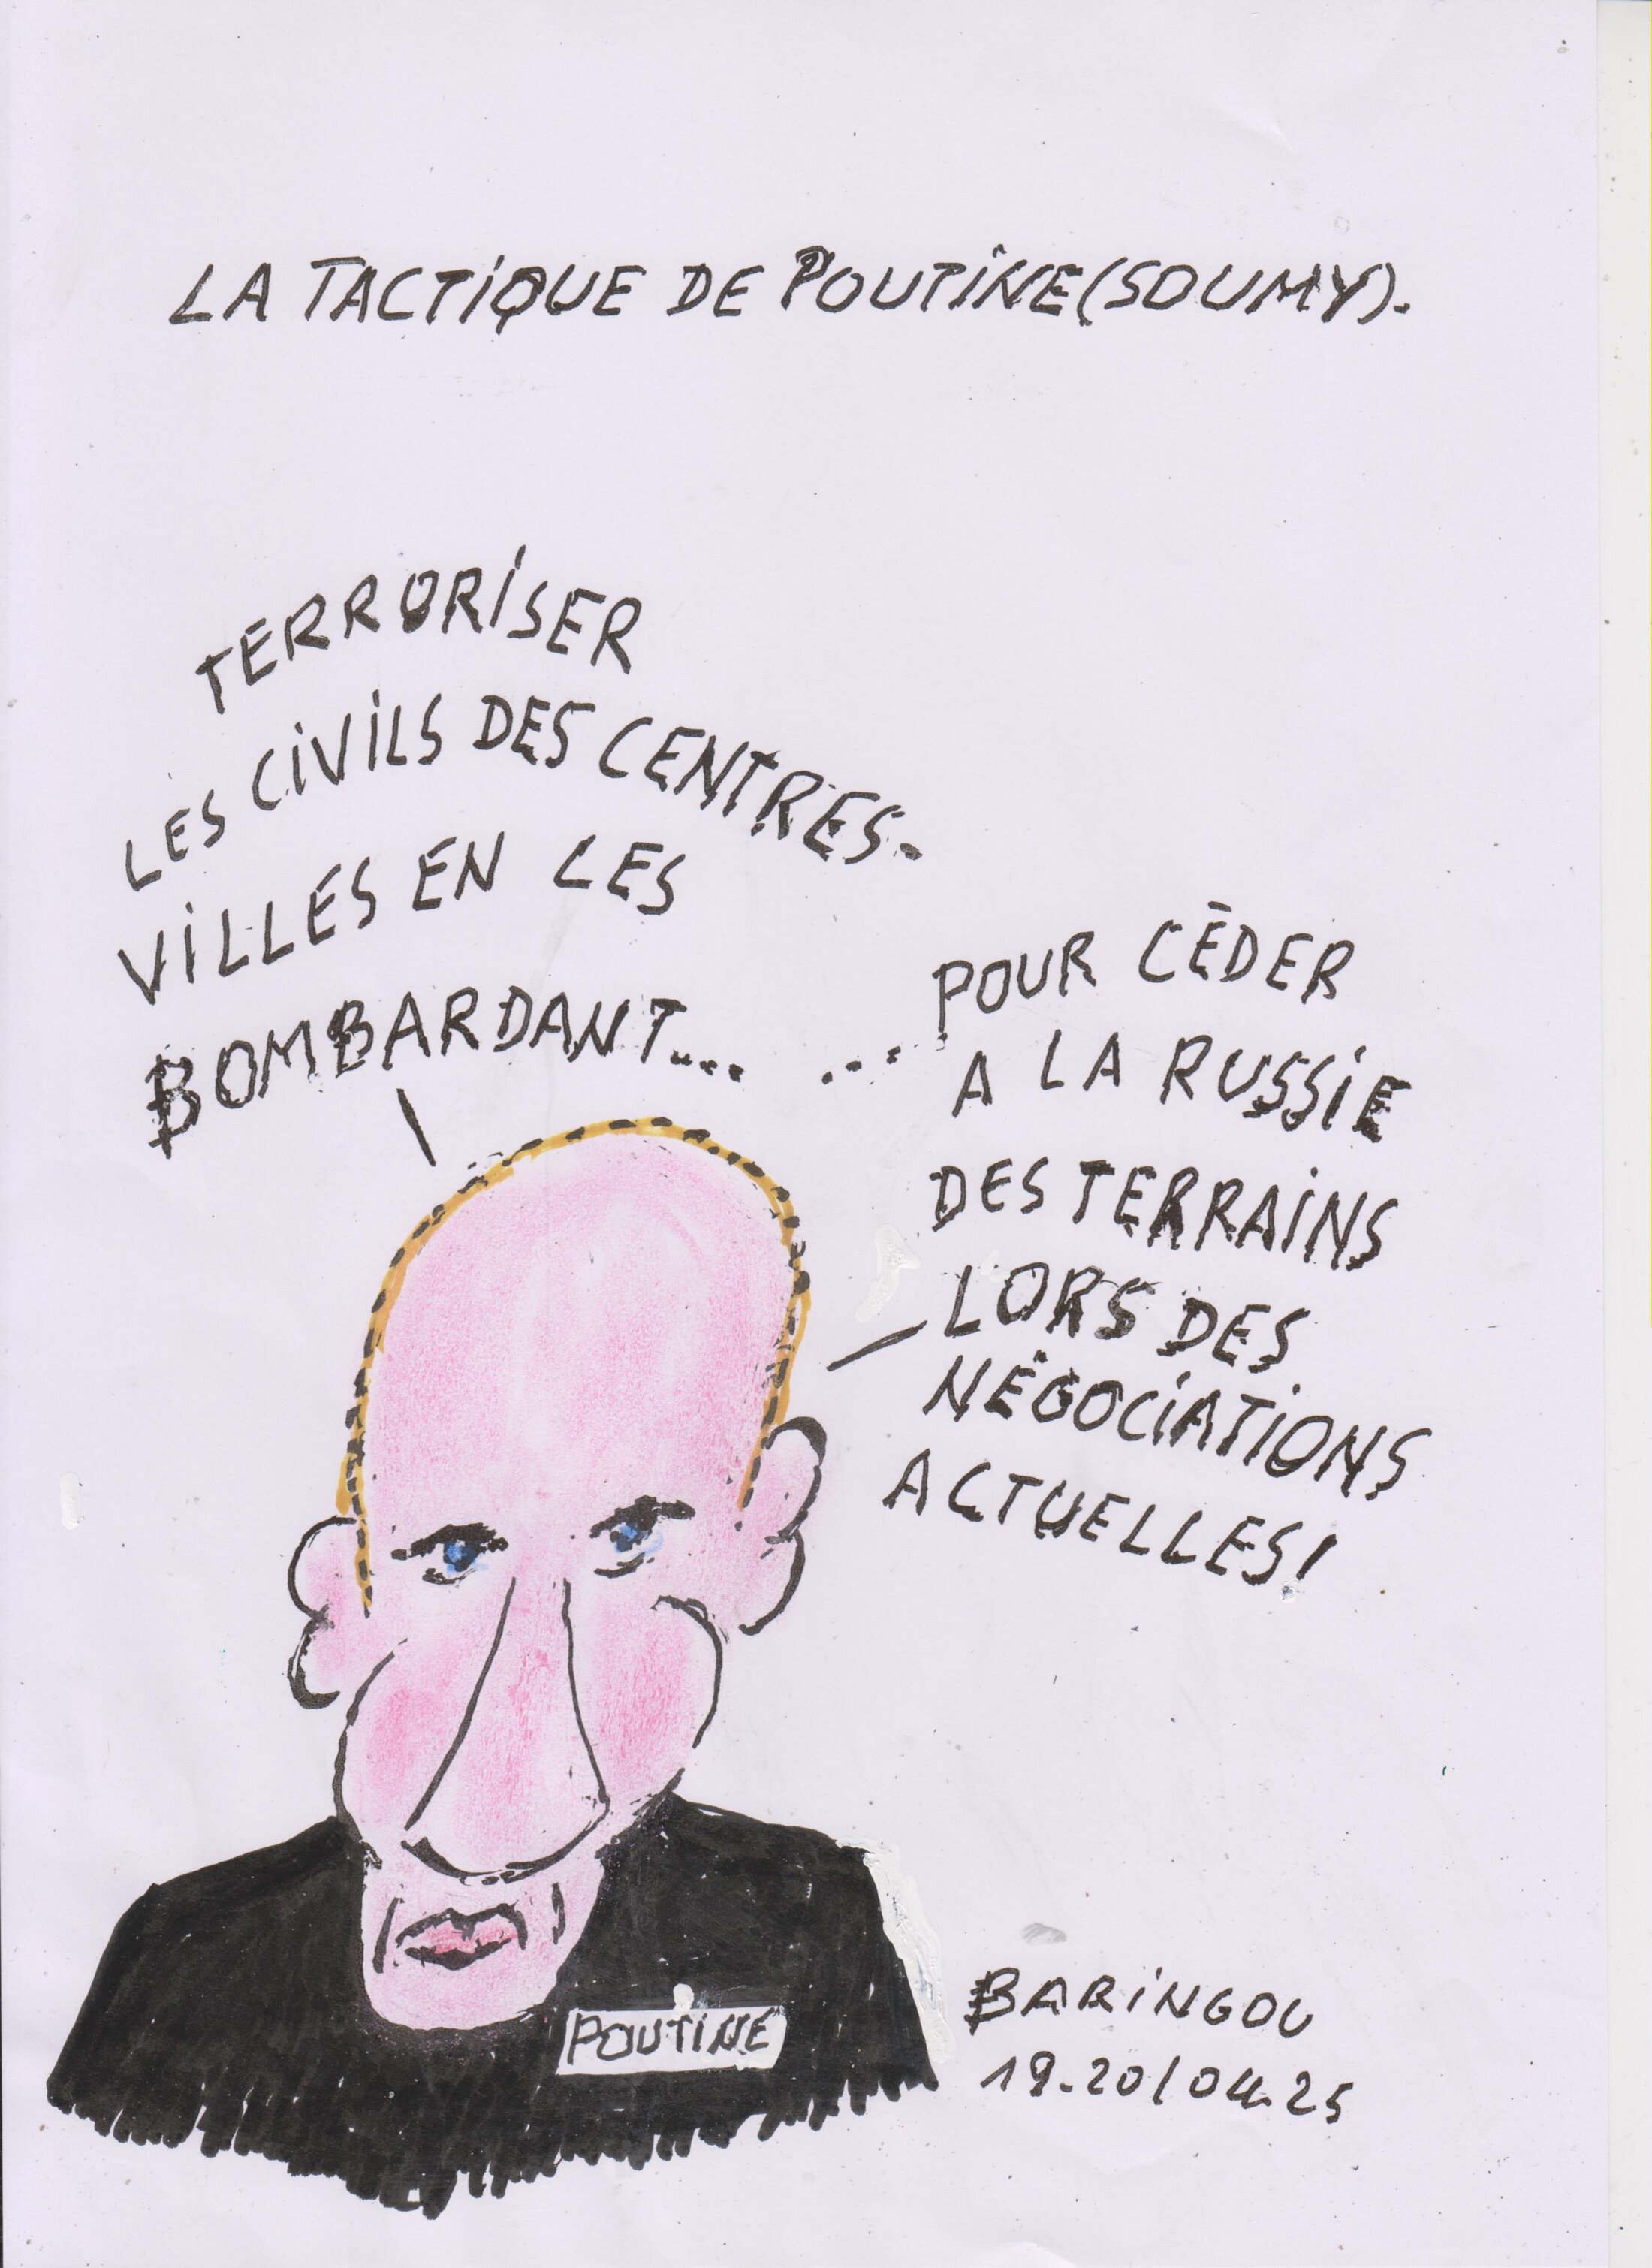 LA TACTIQUE DE POUTINE (SOUMY).
TERRORISER
LES CIVILS DES CENTRES-
VILLES EN LES
BOMBARDANT...
... POUR CÉDER
A LA RUSSIE
DES TERRAINS
LORS DES
NÉGOCIATIONS
ACTUELLES!
POUTINE
BARINGOU
19.20/04.25